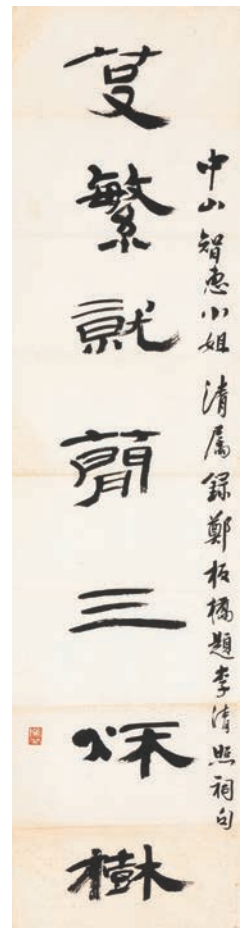 中山智惠小姐 清属 録鄭板橋題李清照祠句
芟繁就簡三秌樹